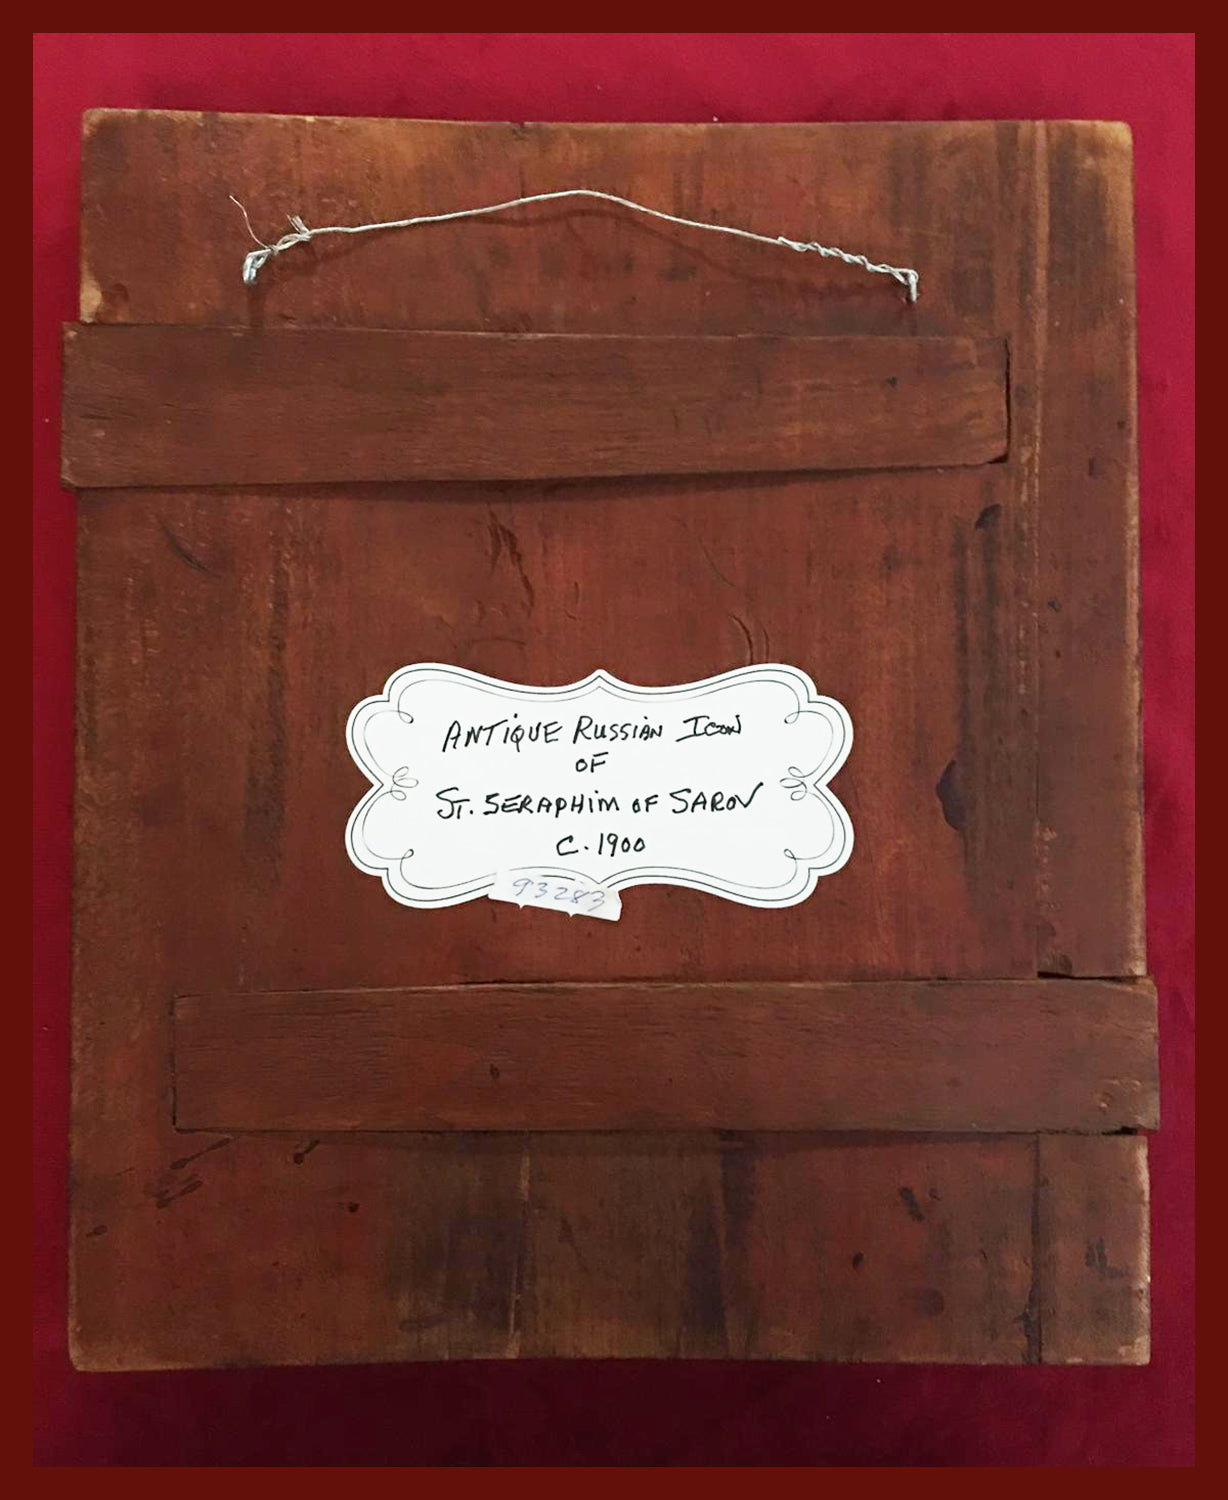 ANTIQUE RUSSIAN ICON
OF
ST. SERAPHIM OF SAROV
C. 1900
93283